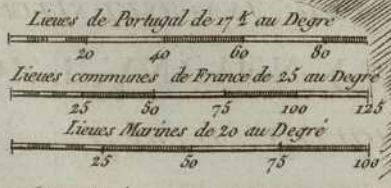 Lieues de Portugal de 17½ au Degré
20 40 60 80
Lieues communes de France de 25 au Degré
25 50 75 100 125
Lieues Marines de 20 au Degré
25 50 75 100